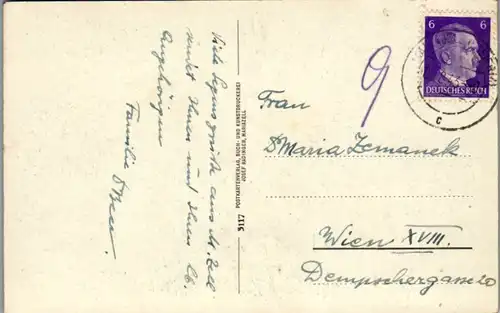 Viele Segensgrüße aus M. Zell
sendet Ihnen und Ihren lb.
Angehörigen
Familie
POSTKARTENVERLAG, BUCH- UND KUNSTDRUCKEREI
JOSEF RADINGER, MARIAZELL
3117
6 6
DEUTSCHES REICH
c
9
Frau
Dr Maria Zemanek
Wien XVIII.
Dempschergasse 20